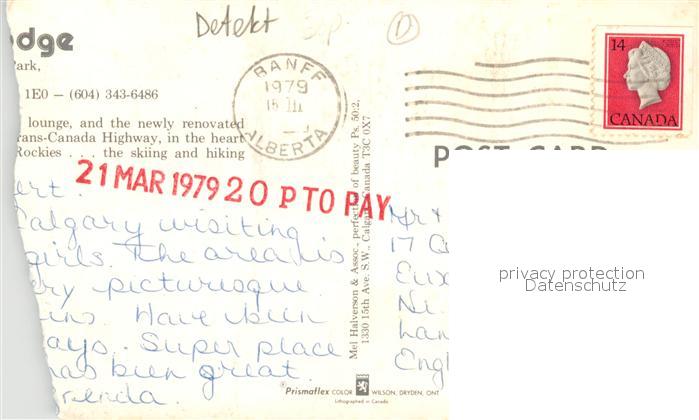 Detekt
D
odge
Park,
1E0 — (604) 343-6486
lounge, and the newly renovated
rans-Canada Highway, in the heart
Rockies . . . the skiing and hiking
BANFF
1979
15 III
ALBERTA
14
CANADA
POST CARD
21 MAR 1979 20 P TO PAY
ert.
Calgary visiting
girls. The area is
ery picturesque
ins. Have been
ays. Super place
has been great
Brenda.
Mel Halverson & Assoc., perfection of beauty Ps. 50:2,
1330 15th Ave. S.W., Calgary, Canada T3C 0X7
Mr +
17
Eux
Ni.
Lan
Engl
privacy protection
Datenschutz
Prismaflex COLOR WILSON, DRYDEN, ONT
Lithographed in Canada